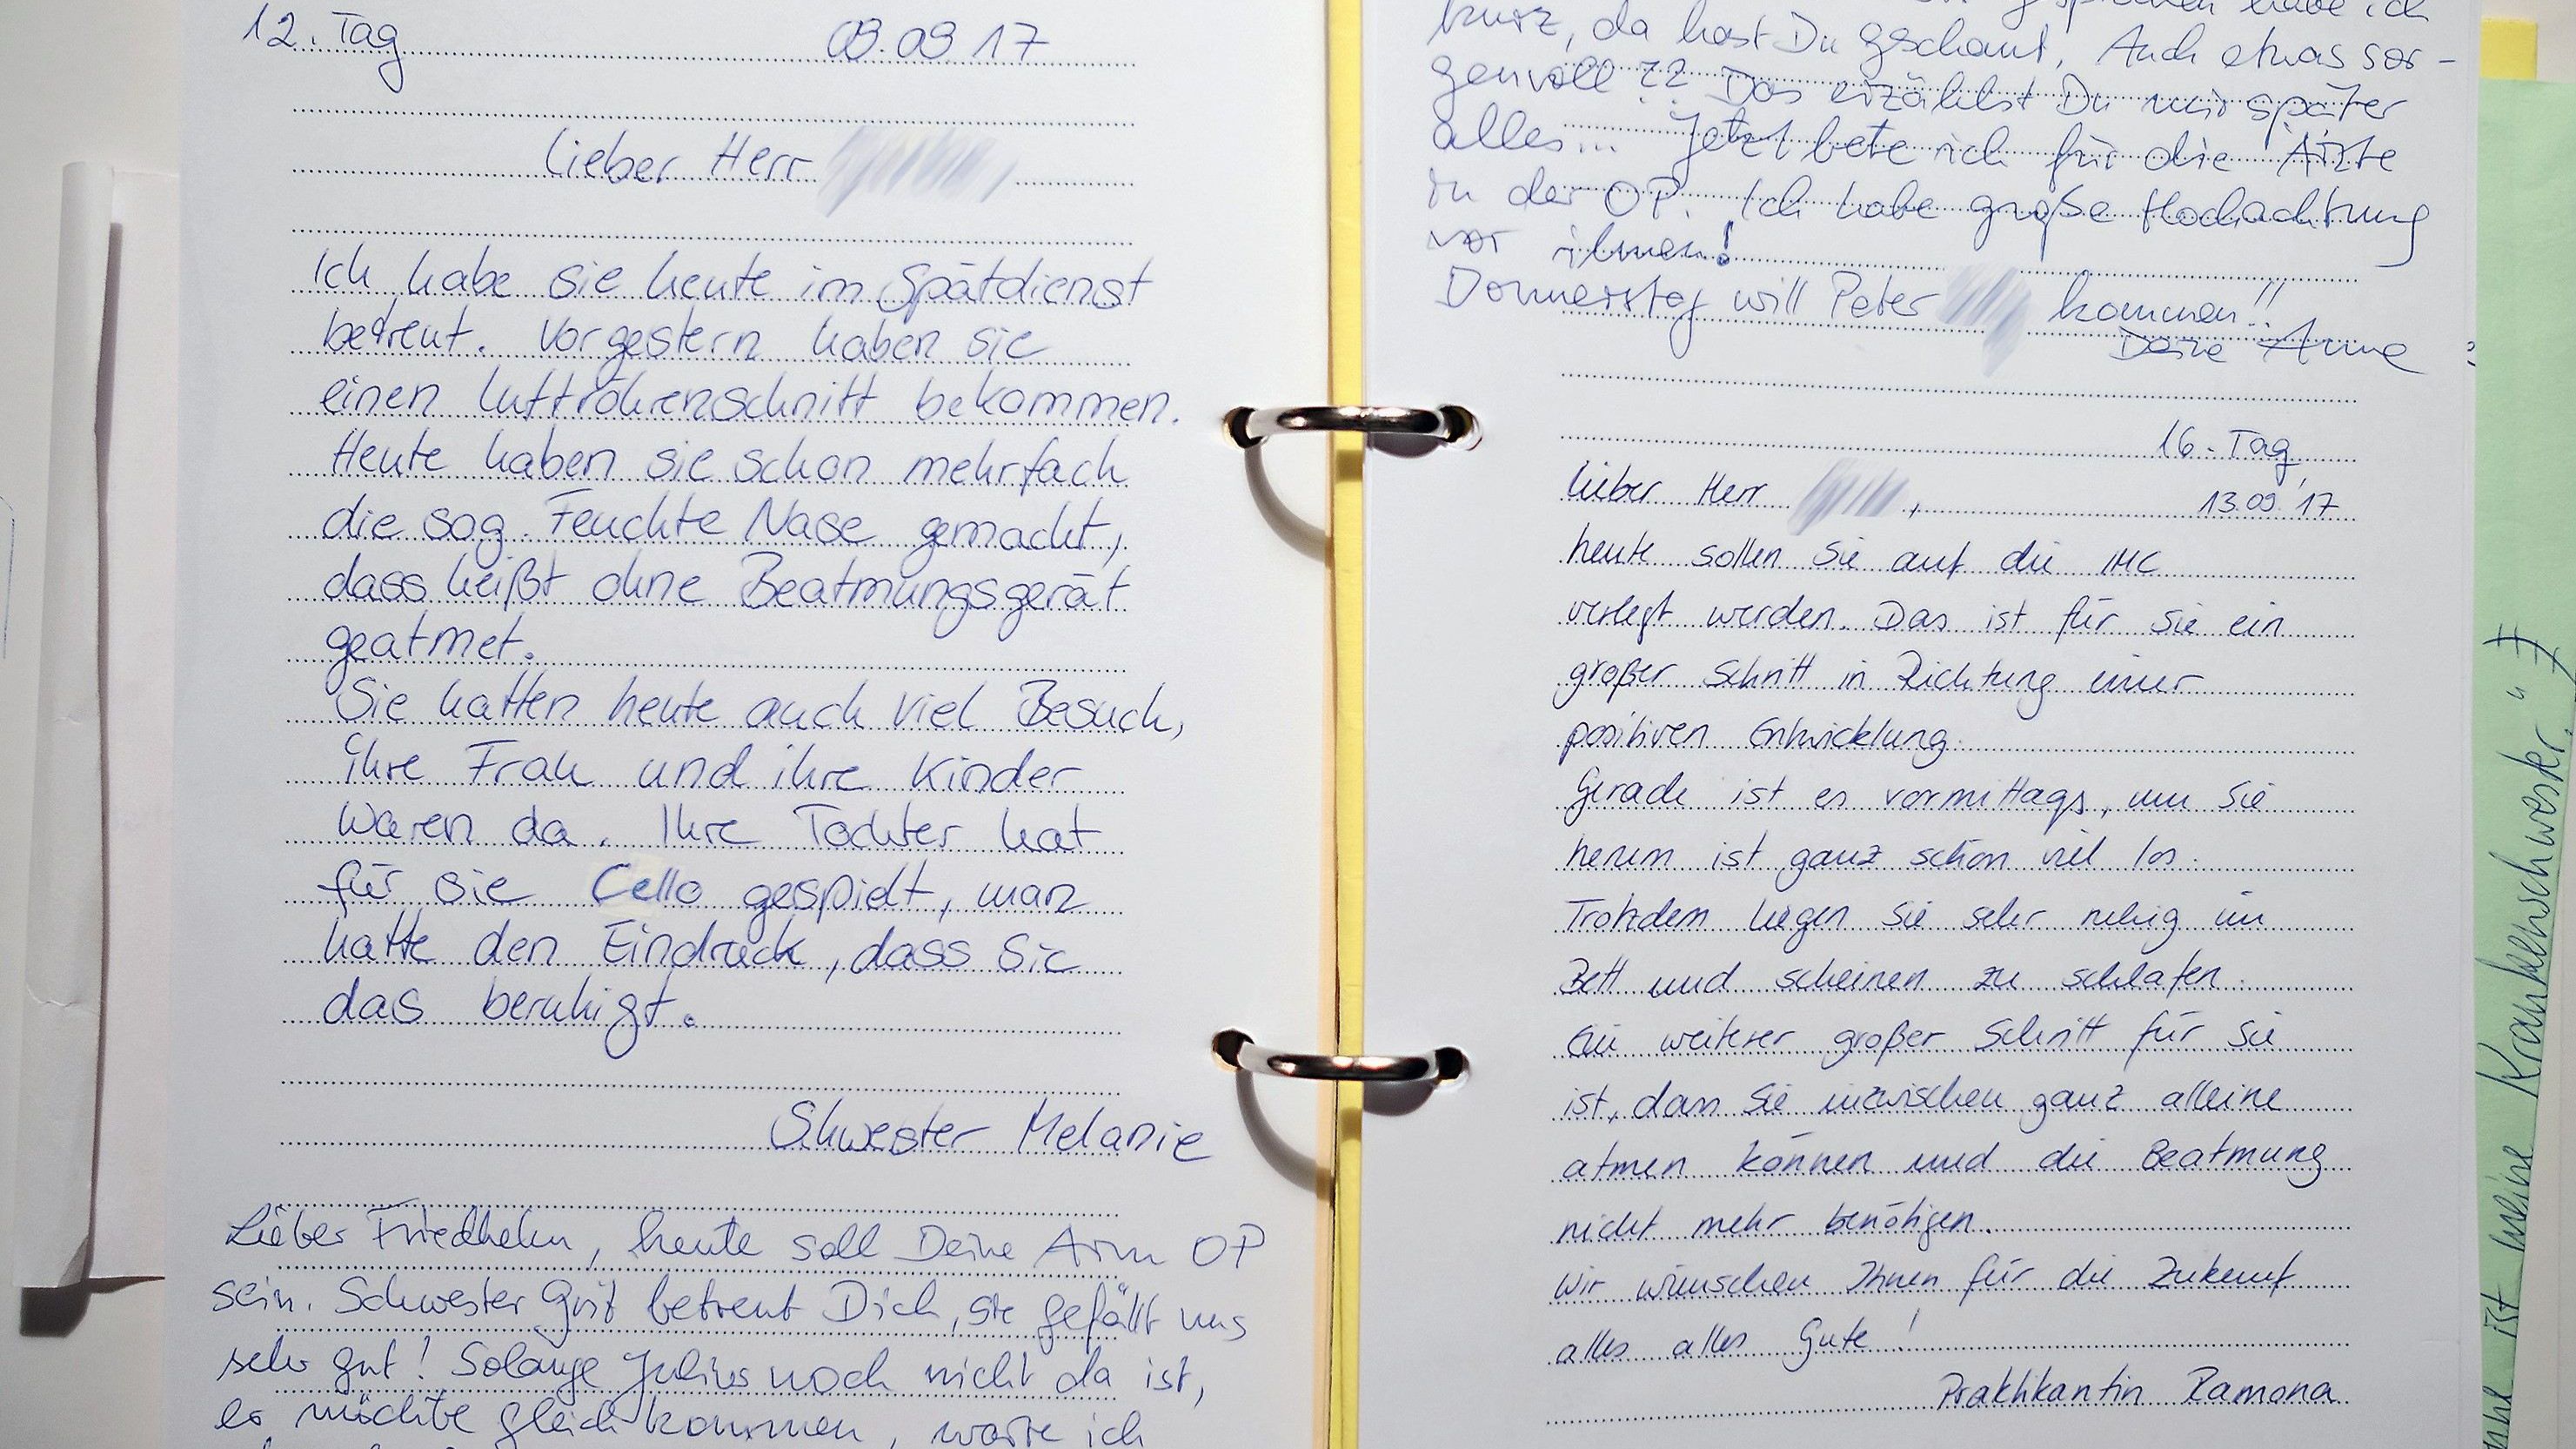 12. Tag 09.09.17
Lieber Herr
Ich habe sie heute im Spätdienst
betreut. Vorgestern haben sie
einen Luftröhrenschnitt bekommen.
Heute haben sie schon mehrfach
die sog. Feuchte Nase gemacht,
dass heißt ohne Beatmungsgerät
geatmet.
Sie hatten heute auch viel Besuch,
ihre Frau und ihre Kinder
waren da. Ihre Tochter hat
für sie Cello gespielt, man
hatte den Eindruck, dass Sie
das beruhigt.
Schwester Melanie
Lieber Friedhelm, heute soll Deine Arm OP
sein. Schwester Grit betreut Dich, sie gefällt uns
sehr gut! Solange Julius noch nicht da ist,
er möchte gleich kommen, warte ich
habe ich
kurz, da hast Du geschaut. Auch etwas sor-
genvoll ?? Das erzählst Du mir später
alles... Jetzt bete ich für die Ärzte
in der OP. Ich habe große Hochachtung
vor ihnen!
Donnerstag will Peter kommen!!
Deine Anne
16. Tag
Lieber Herr , 13.09.17
heute sollen Sie auf die IMC
verlegt werden. Das ist für Sie ein
großer Schritt in Richtung einer
positiven Entwicklung.
Gerade ist es vormittags, um Sie
herum ist ganz schön viel los.
Trotzdem liegen Sie sehr ruhig im
Bett und scheinen zu schlafen.
Ein weiterer großer Schritt für Sie
ist, dass Sie inzwischen ganz alleine
atmen können und die Beatmung
nicht mehr benötigen.
Wir wünschen Ihnen für die Zukunft
alles alles Gute!
Praktikantin Ramona
ist meine Krankenschwester."